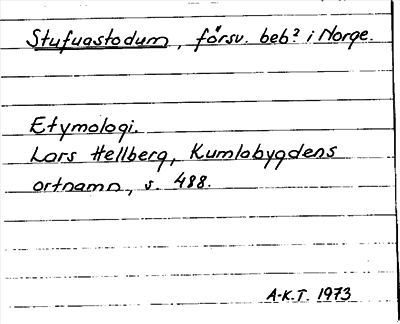 Stufuastodum, försv. beb? i Norge.
Etymologi.
Lars Hellberg, Kumlabygdens
ortnamn, s. 488.
A-K.T. 1973